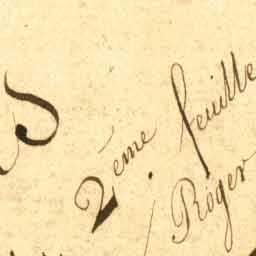 2ème. feuille
Roger